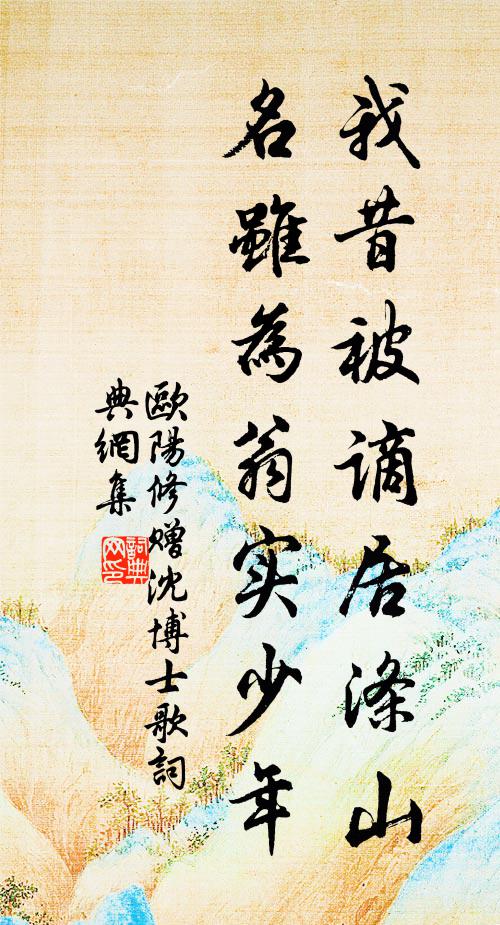 我昔被謫居涤山
名雖為翁实少年
歐陽修贈沈博士歌詞
典網集
詞典
网印